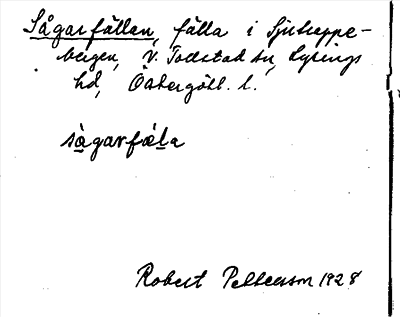 Sågarfällan, fälla i Sjuheppe-
bergen, V. Tollstad sn, Lysings
hd, Östergötl. l.
sågarfäla
Robert Pettersson 1928